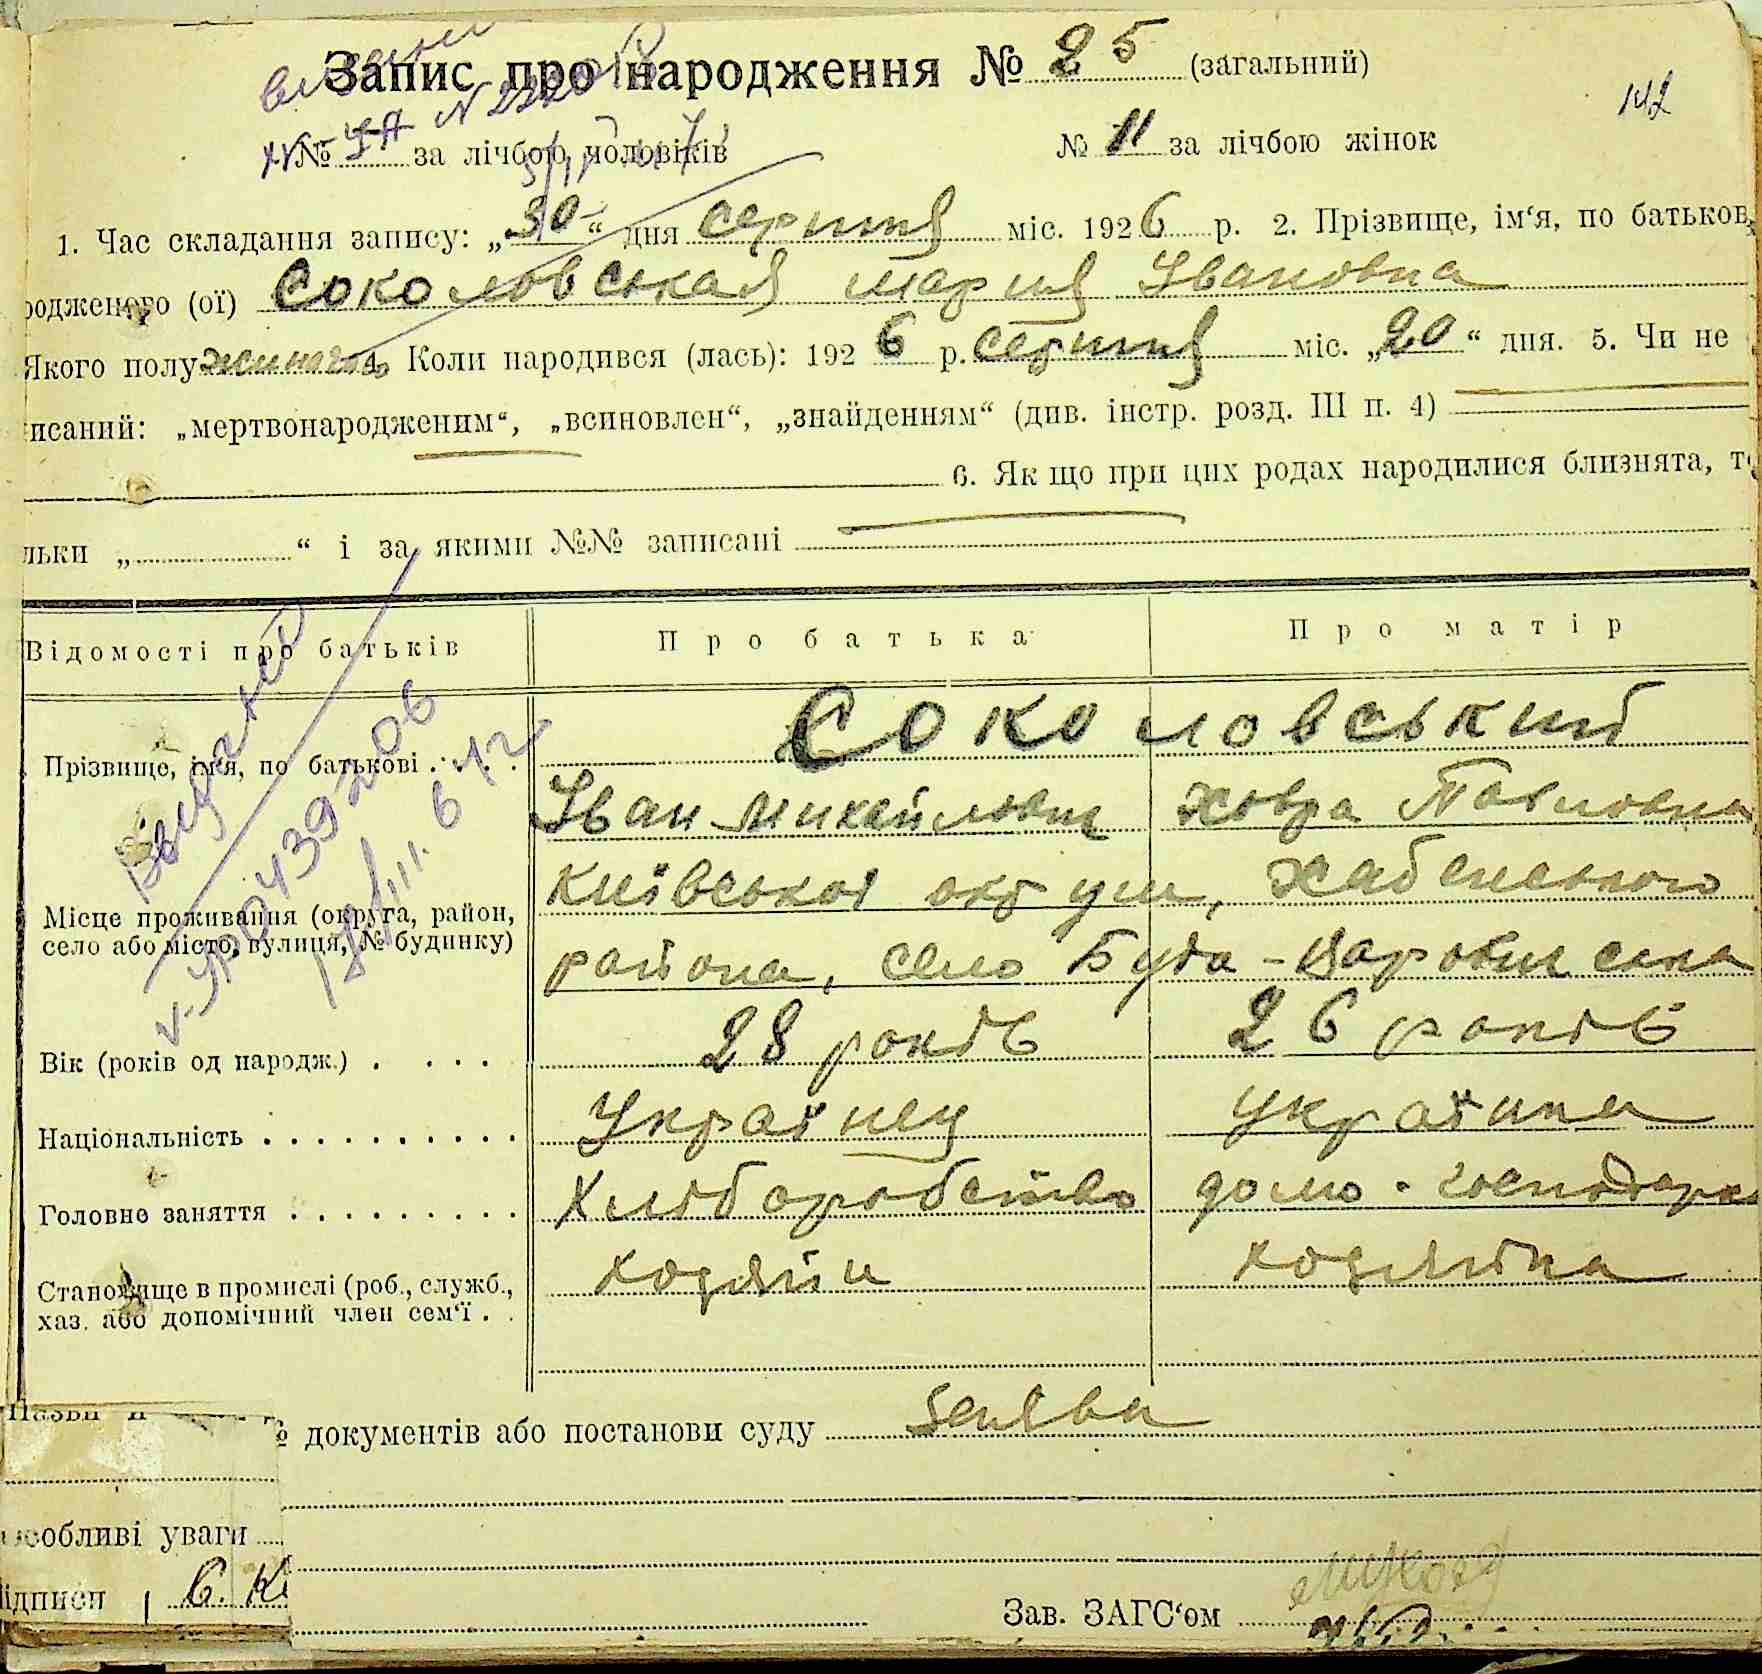 Запис про народження № 25 (загальний)
142
№ за лічбою чоловіків № 11 за лічбою жінок
1. Час складання запису: „30“ дня серпня міс. 1926 р. 2. Прізвище, ім‘я, по батьков
родженого (ої) Соколовськая Мария Івановна
Якого полу жиночого 4. Коли народився (лась): 1926 р. серпня міс. „20“ дня. 5. Чи не
исаний: „мертвонародженим“, „всиновлен“, „знайденням“ (див. інстр. розд. III п. 4)
6. Як що при цих родах народилися близнята, то
льки „ “ і за якими №№ записані
Відомості про батьків Про батька Про матір
Соколовський
Прізвище, ім‘я, по батькові . . . .
Іван Михайлович Хввра Павловна
Місце проживання (округа, район, село або місто, вулиця, № будинку)
Київськоі округи, Хабенського
района, село Буда-Варовичська
Вік (років од народж.) . . . . 28 років 26 років
Національність . . . . . . . . . . Українец українка
Головне заняття . . . . . . . . . Хліборобство домо-господарка
Становище в промислі (роб., служб., хаз. або допомічний член сем‘ї . . хозяїн хозяїка
Назви й № документів або постанови суду заява
особливі уваги
ідписи
Зав. ЗАГС‘ом